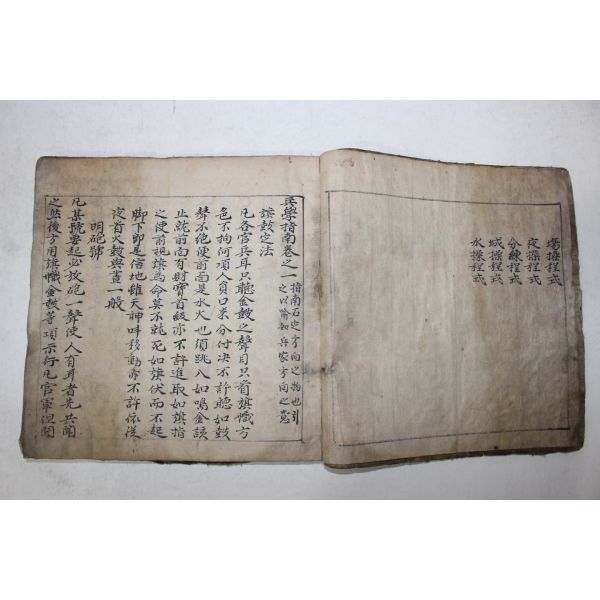 場操程式
夜操程式
分練程式
城操程式
水操程式
兵學指南卷之一 指南石定方向之物也引之以喻知兵家方向之意
旗鼓定法
凡各官兵耳只聽金鼓之聲目只看旗幟方
色不拘何項人員口來分付决不許聽如鼓
聲不絶便前面是水火也須跳入如鳴金該
止就前面有財寶首級亦不許進取如旗指
之使前視旗爲命莫不就死如旗伏而不起
脚下即是信地雖天神呌移動亦不許依從
夜看火鼓與晝一般
明砲號
凡某號要起必放砲一聲使人有耳者先共聞
之然後方用旗幟金鼓等項示行凡官軍但聞